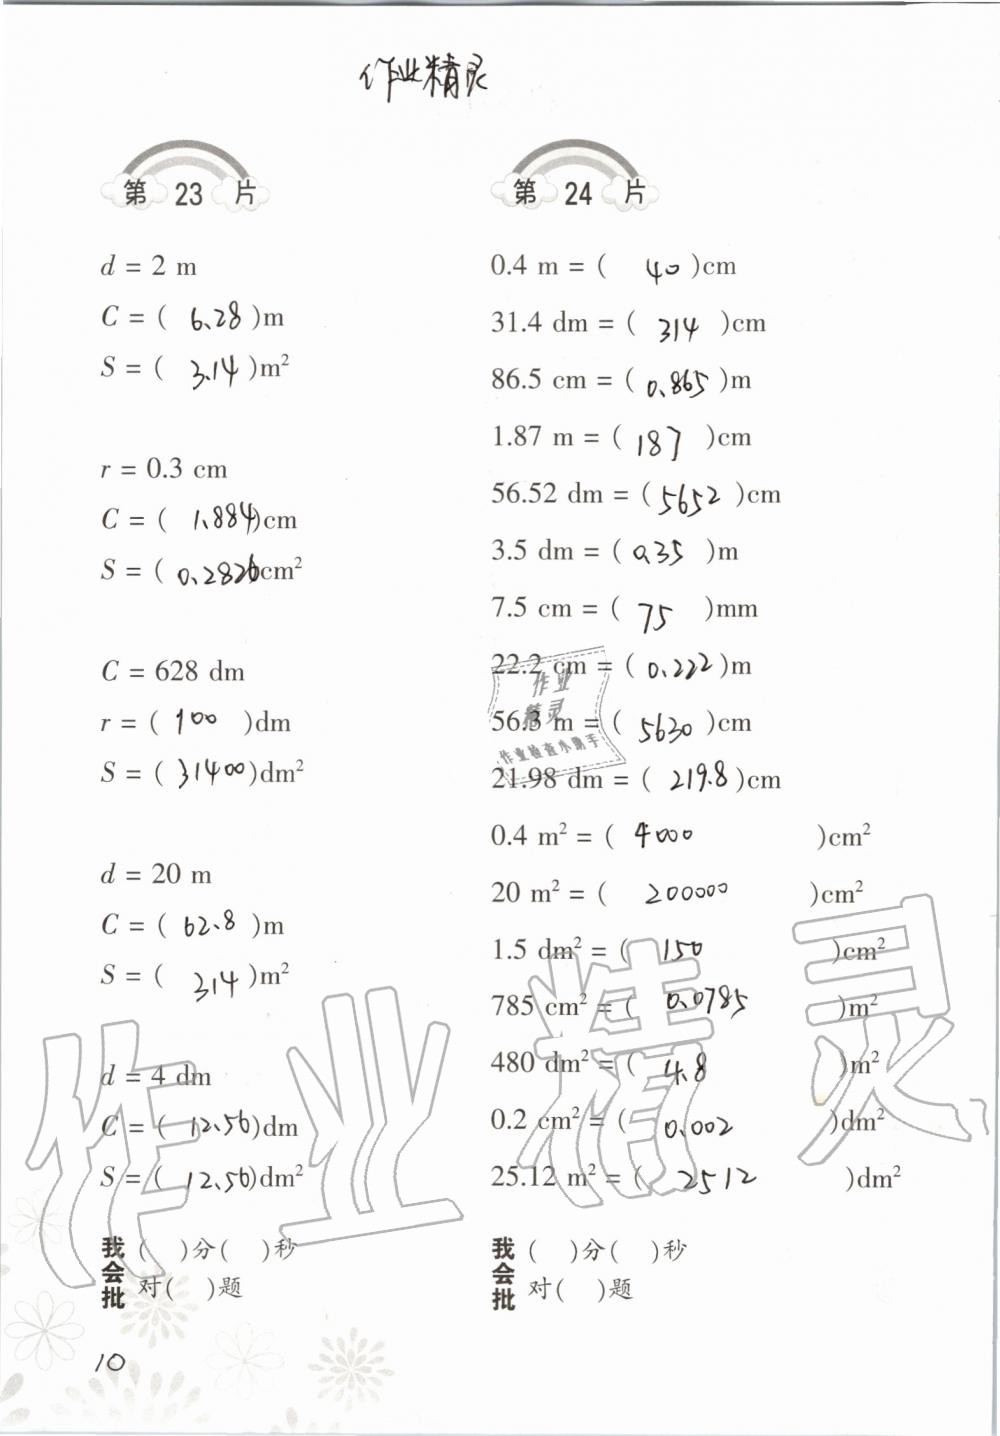 作业精灵
第 23 片
d = 2 m
C = ( 6.28 )m
S = ( 3.14 )m²
r = 0.3 cm
C = ( 1.884 )cm
S = ( 0.2826 )cm²
C = 628 dm
r = ( 100 )dm
S = ( 31400 )dm²
d = 20 m
C = ( 62.8 )m
S = ( 314 )m²
d = 4 dm
C = ( 12.56 )dm
S = ( 12.56 )dm²
我会批
( )分( )秒
对( )题
第 24 片
0.4 m = ( 40 )cm
31.4 dm = ( 314 )cm
86.5 cm = ( 0.865 )m
1.87 m = ( 187 )cm
56.52 dm = ( 5652 )cm
3.5 dm = ( 0.35 )m
7.5 cm = ( 75 )mm
22.2 cm = ( 0.222 )m
56.3 m = ( 5630 )cm
21.98 dm = ( 219.8 )cm
0.4 m² = ( 4000 )cm²
20 m² = ( 200000 )cm²
1.5 dm² = ( 150 )cm²
785 cm² = ( 0.0785 )m²
480 dm² = ( 4.8 )m²
0.2 cm² = ( 0.002 )dm²
25.12 m² = ( 2512 )dm²
我会批
( )分( )秒
对( )题
10
作业
精灵
作业检查小助手
作业精灵